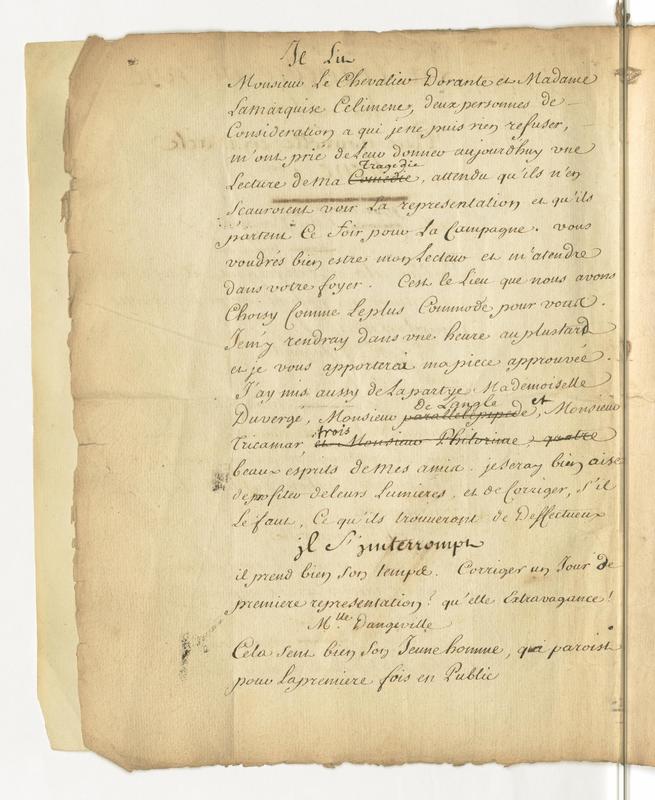 Il Lit
Monsieur Le Chevalier Dorante et Madame
Lamarquise Celimene, deux personnes de
Consideration a qui jene puis rien refuser,
m'ont prié deLeur donner aujourd'huy vne
Tragedie
Lecture de ma Comedie, attendu qu'ils n'en
scauroient voir La representation et qu'ils
partent Ce soir pour La Campagne. vous
voudrés bien estre mon Lecteur et m'atendre
dans votre foyer. C'est le Lieu que nous avons
Choisy Comme Le plus Commode pour vous.
Jem'y rendray dans vne heure au plustard
et je vous apporterai ma piece approuvée.
J'ay mis aussy de Lapartye Mademoiselle
de Langle et
Duvergé, Monsieur parallelipipede, Monsieur
trois
Tricamar, et Monsieur Philorine, quatre
beaux esprits de mes amis. je seray bien aise
de profiter deleurs Lumieres, et de Corriger, s'il
Le faut, Ce qu'ils trouveront de Deffectueux
jl S'jnterrompt
il prend bien son temps. Corriger un Jour de
premiere representation! qu'elle Extravagance!
Mlle Dangeville
Cela sent bien son Jeune homme, qui paroist
pour Lapremiere fois en Public